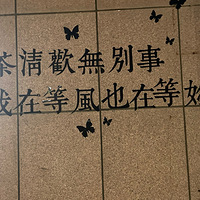 茶清歡無別事
我在等風也在等妳